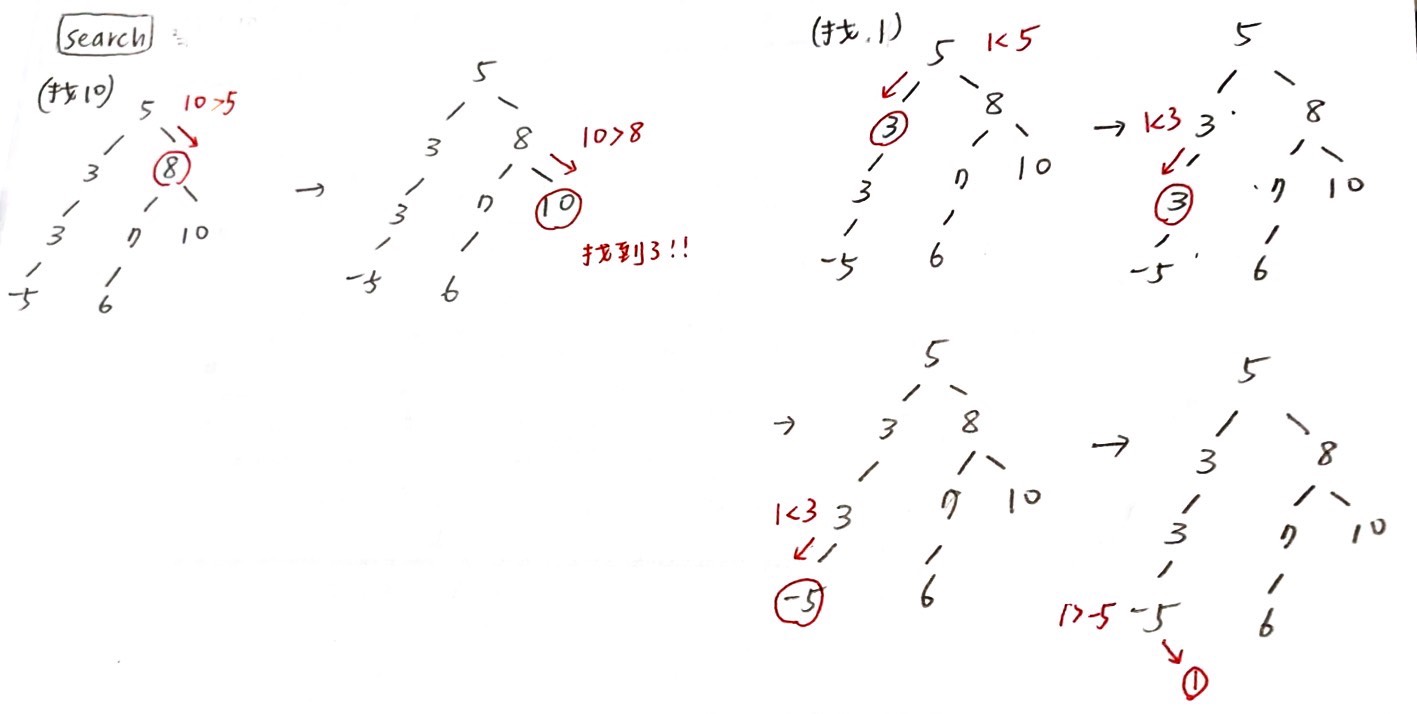 search
(找10)
5 10>5
3 8
3 7 10
-5 6
→
5
3 8 10>8
3 7 10
-5 6
找到了!!
(找1)
5 1<5
3 8
3 7 10
-5 6
→
5
1<3 3 8
3 7 10
-5 6
→
5
3 8
1<3 3 7 10
-5 6
→
5
3 8
3 7 10
1>-5 -5 6
1